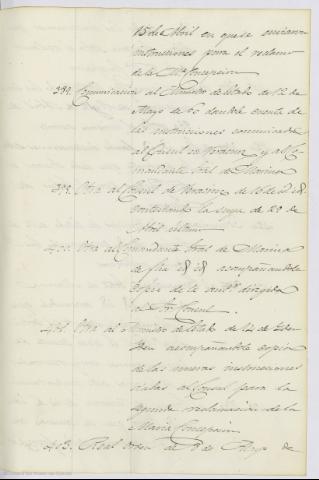 15 de Abril en que se enviaron
instrucciones para el reclamo
de la Mª Concepcion
399. Comunicacion al Ministro de Estado de 12 de
Mayo de 60 dandole cuenta de
las instrucciones comunicadas
al Consul en Veracruz y al Co-
mandante Gral de Marina
399. Otra al Consul de Veracruz de 16 de id id
contestando la suya de 20 de
Abril ultimo
400. Otra al Comandante Gral de Marina
de fha id id acompañandole
copia de la dirigida
al Sr Consul.
401. Otra al Ministro de Estado de
acompañandole copia
de las nuevas instrucciones
dadas al Consul para la
segunda reclamacion de la
Maria Concepcion
403. Real orden de 8 de Mayo de